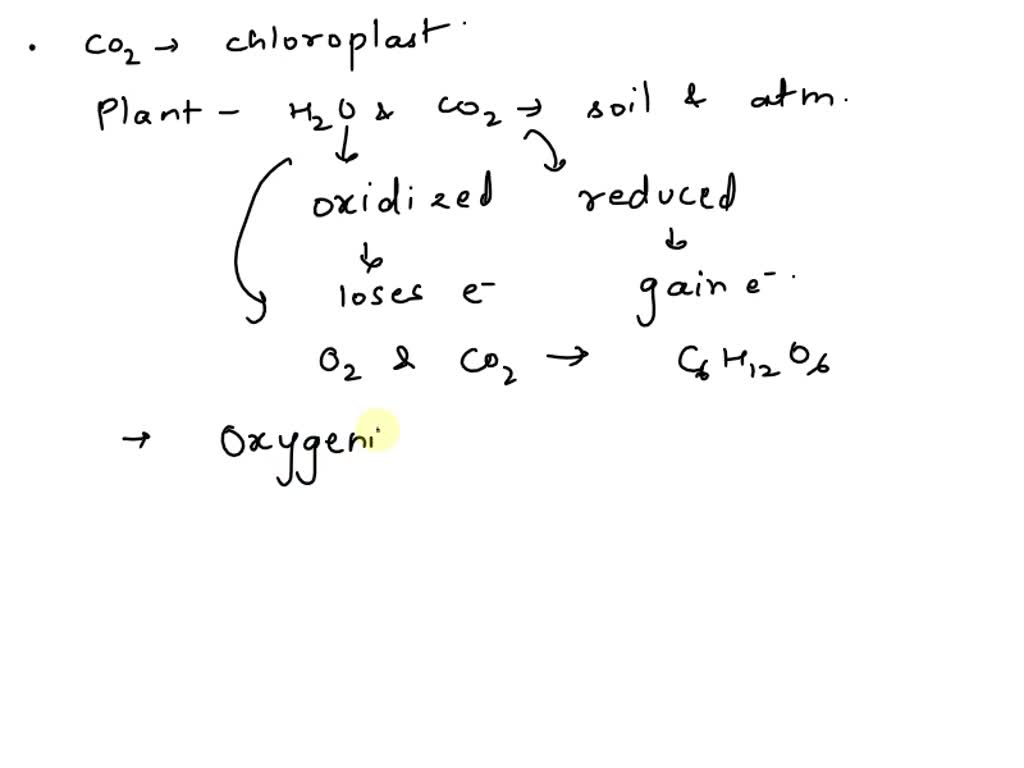 . CO2 → chloroplast.
Plant - H2O & CO2 → soil & atm.
oxidized reduced
loses e- gain e-.
O2 & CO2 → C6H12O6
→ Oxygeni